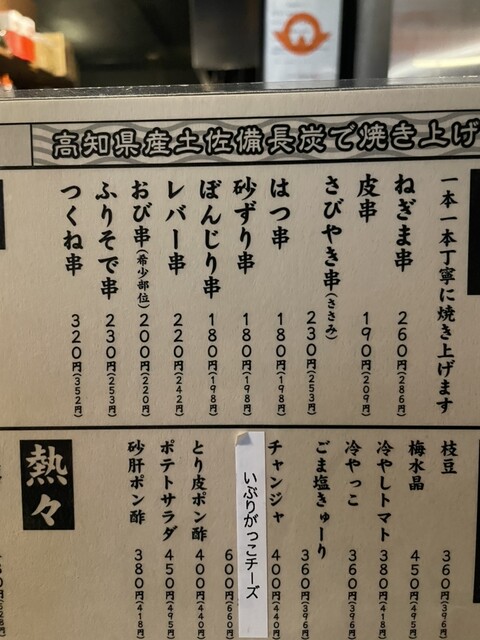 高知県産土佐備長炭で焼き上げ
一本一本丁寧に焼き上げます
ねぎま串 260円(286円)
皮串 190円(209円)
さびやき串(ささみ) 230円(253円)
はつ串 180円(198円)
砂ずり串 180円(198円)
ぼんじり串 180円(198円)
レバー串 220円(242円)
おび串(希少部位) 200円(220円)
ふりそで串 230円(253円)
つくね串 320円(352円)
枝豆 360円(396円)
梅水晶 450円(495円)
冷やしトマト 380円(418円)
冷やっこ 360円(396円)
ごま塩きゅーり 360円(396円)
チャンジャ 400円(440円)
いぶりがっこチーズ 600円(660円)
とり皮ポン酢 400円(440円)
ポテトサラダ 450円(495円)
砂肝ポン酢 380円(418円)
熱々